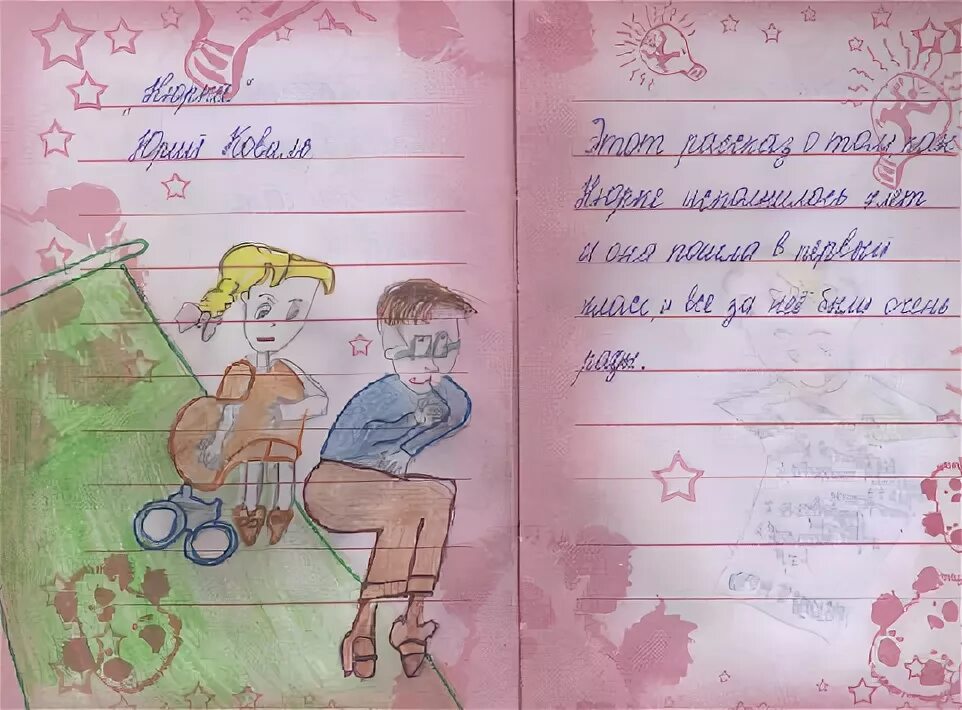 „Нюрка"
Юрий Коваль
Этот рассказ о том как
Нюрке исполнилось 7лет
и она пошла в первый
класс, и все за неё были очень
рады.